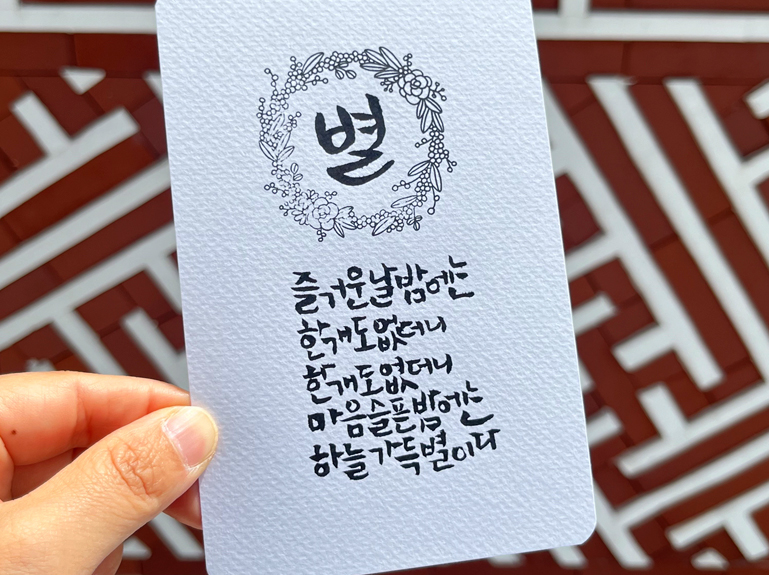 별
즐거운날밤에는
한개도없더니
한개도없더니
마음슬픈밤에는
하늘가득별이다